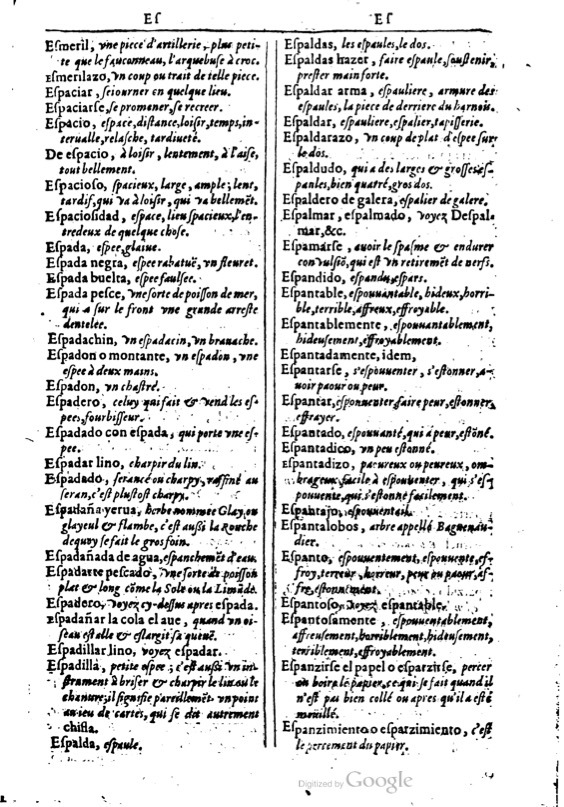 Eſ
Eſmeril, vne piece d'artillerie, plus peti-
te que le fauconneau, l'arquebuſe à croc.
Eſmerilazo, vn coup ou trait de telle piece.
Eſpaciar, ſeiourner en quelque lieu.
Eſpaciarſe, ſe promener, ſe recreer.
Eſpacio, eſpace, diſtance, loiſir, temps, in-
terualle, relaſche, tardiueté.
De eſpacio, à loiſir, lentement, à l'aiſe,
tout bellement.
Eſpacioſo, ſpacieux, large, ample; lent,
tardif, qui va à loiſir, qui va bellemẽt.
Eſpacioſidad, eſpace, lieu ſpacieux, l'en-
tredeux de quelque choſe.
Eſpada, eſpee, glaiue.
Eſpada negra, eſpee rabatuë, vn fleuret.
Eſpada buelta, eſpee faulſee.
Eſpada peſce, vne ſorte de poiſſon de mer,
qui a ſur le front vne grande arreſte
dentelee.
Eſpadachin, vn eſpadacin, vn brauache.
Eſpadon o montante, vn eſpadon, vne
eſpee à deux mains.
Eſpadon, vn chaſtré.
Eſpadero, celuy qui fait & vend les eſ-
pees, fourbiſſeur.
Eſpadado con eſpada, qui porte vne eſ-
pee.
Eſpadar lino, charpir du lin.
Eſpadado, ſerancé ou charpy, raffiné au
ſeran, c'eſt pluſtoſt charpy.
Eſpadaña yerua, herbe nommee Glay, ou
glayeul & flambe, c'eſt auſſi la Rouche
dequoy ſe fait le gros foin.
Eſpadañada de agua, eſpanchemẽt d'eau.
Eſpadarte peſcado, vne ſorte de poiſſon
plat & long cõme la Sole ou la Limãde.
Eſpadero, voyez cy-deſſus apres eſpada.
Eſpadañar la cola el aue, quand vn oi-
ſeau eſtalle & eſlargit ſa queuë.
Eſpadillar lino, voyez eſpadar.
Eſpadilla, petite eſpee; c'eſt auſſi vn in-
ſtrument à briſer & charpir le lin ou le
chanure; il ſignifie pareillemẽt vn point
au ieu de cartes, qui ſe dit autrement
chifla.
Eſpalda, eſpaule.
Eſ
Eſpaldas, les eſpaules, le dos.
Eſpaldas hazer, faire eſpaule, ſouſtenir,
preſter main forte.
Eſpaldar arma, eſpauliere, armure des
eſpaules, la piece de derriere du harnois.
Eſpaldar, eſpauliere, eſpalier, tapiſſerie.
Eſpaldarazo, vn coup de plat d'eſpee ſur
le dos.
Eſpaldudo, qui a des larges & groſſes eſ-
paules, bien quatré, gros dos.
Eſpaldero de galera, eſpalier de galere.
Eſpalmar, eſpalmado, voyez Deſpal-
mar, &c.
Eſpamarſe, auoir le ſpaſme & endurer
conuulſiõ, qui eſt vn retiremẽt de nerfs.
Eſpandido, eſpandu, eſpars.
Eſpantable, eſpouuantable, hideux, horri-
ble, terrible, affreux, effroyable.
Eſpantablemente, eſpouuantablement,
hideuſement, effroyablement.
Eſpantadamente, idem,
Eſpantarſe, s'eſpouuenter, s'eſtonner, a-
uoir paour ou peur.
Eſpantar, eſpouuenter, faire peur, eſtonner,
effrayer.
Eſpantado, eſpouuanté, qui a peur, eſtõné.
Eſpantadico, vn peu eſtonné.
Eſpantadizo, paoureux ou peureux, om-
brageux, facile à eſpouuenter, qui s'eſ-
pouuente, qui s'eſtonne facilement.
Eſpantajo, eſpouuentail.
Eſpantalobos, arbre appellé Baguenau-
dier.
Eſpanto, eſpouuentement, eſpouuente, eſ-
froy, terreur, horreur, peur ou paour, af-
fre, eſtonnement.
Eſpantoſo, voyez eſpantable.
Eſpantoſamente, eſpouuentablement,
affreuſement, horriblement, hideuſement,
terriblement, effroyablement.
Eſpanzirſe el papel o eſparzirſe, percer
ou boire le papier, ce qui ſe fait quand il
n'eſt pas bien collé ou apres qu'il a eſté
moüillé.
Eſpanzimiento o eſpatzimiento, c'eſt
le percement du papier.
Digitized by Google